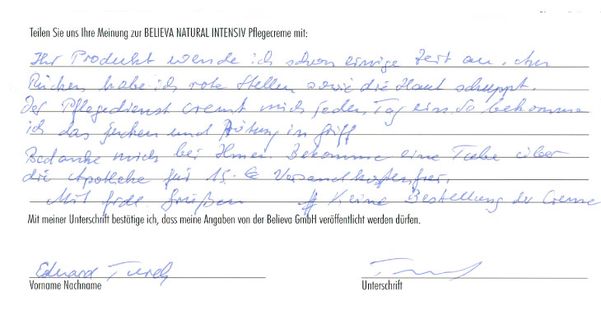 Teilen Sie uns Ihre Meinung zur BELIEVA NATURAL INTENSIV Pflegecreme mit:
Ihr Produkt wende ich schon einige Zeit an. Am
Rücken habe ich rote Stellen sowie die Haut schuppt.
Der Pflegedienst cremt mich jeden Tag ein. So bekomme
ich das Jucken und Rötung in Griff
Bedanke mich bei Ihnen. Bekomme eine Tube über
die Apotheke für 15.€ Versandkostenfrei.
Mit Grüßen # Keine Bestellung der Creme
Mit meiner Unterschrift bestätige ich, dass meine Angaben von der Believa GmbH veröffentlicht werden dürfen.
Eduard
Vorname Nachname Unterschrift